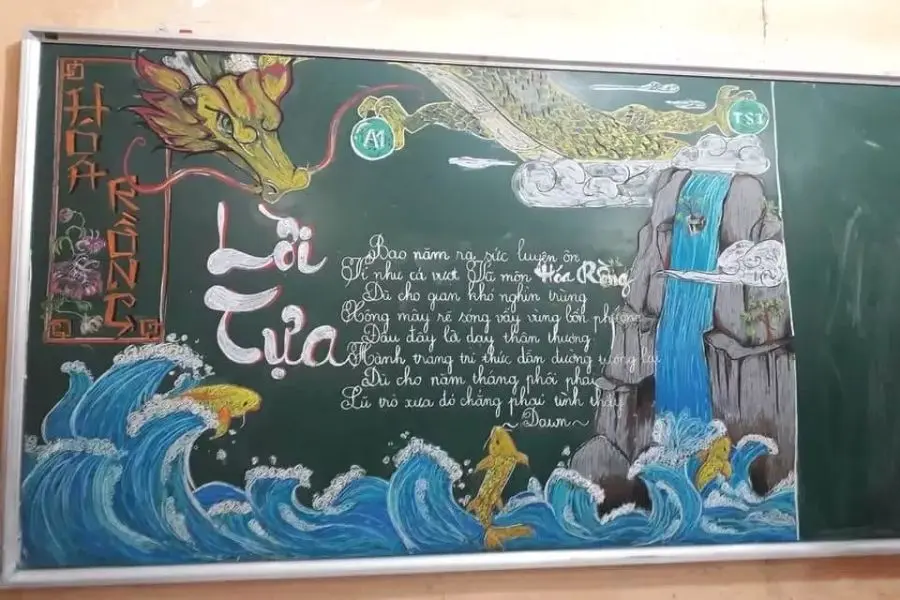 HOÁ
RỒNG
A1
TS1
Lời
Tựa
Bao năm ra sức luyện ôn
Ví như cá vượt Vũ môn Hóa Rồng
Dù cho gian khó nghìn trùng
Xông mây rẽ sóng vẫy vùng bốn phương
Đâu đây lời dạy thân thương
Hành trang tri thức dẫn đường tương lai
Dù cho năm tháng phôi phai
Lũ trò xưa đó chẳng phai tình thầy
~ Dawn ~